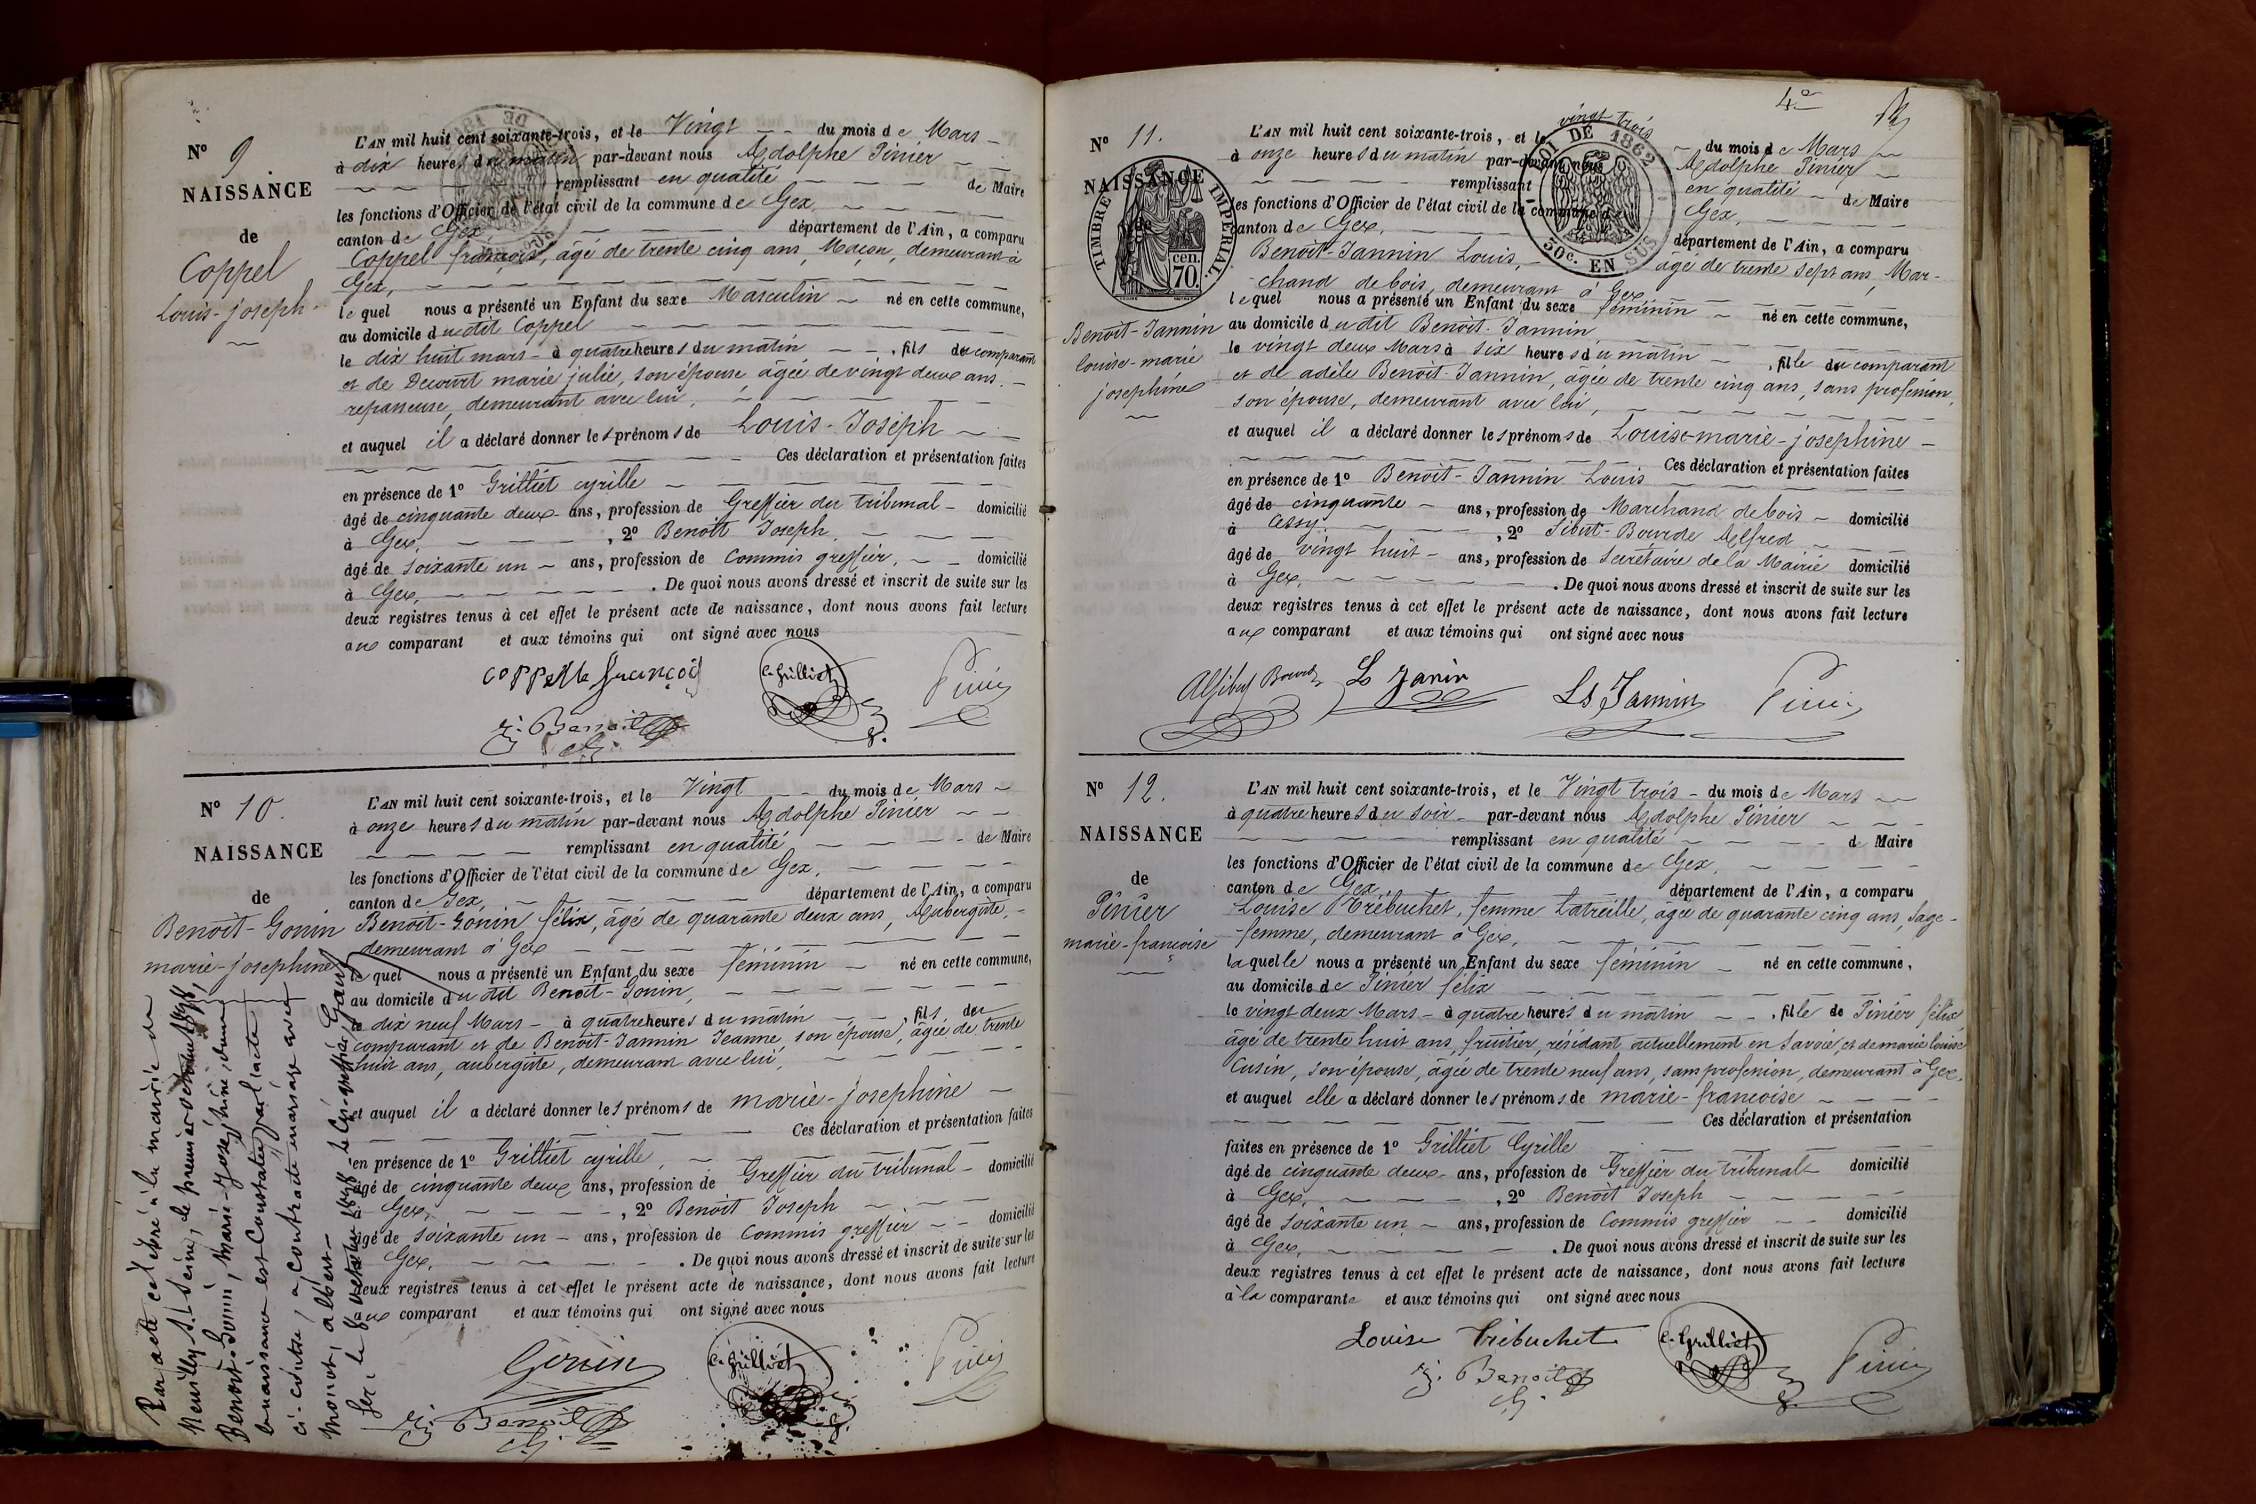 N° 9.
NAISSANCE
de
Coppel
Louis-Joseph
L'AN mil huit cent soixante-trois, et le Vingt du mois de Mars
à dix heures du matin par-devant nous Adolphe Pinier
remplissant en qualité de Maire
les fonctions d'Officier de l'état civil de la commune de Gex,
canton de Gex, département de l'Ain, a comparu
Coppel françois, âgé de trente cinq ans, Maçon, demeurant à
Gex,
lequel nous a présenté un Enfant du sexe Masculin né en cette commune,
au domicile du dit Coppel
le dix huit mars à quatre heures du matin, fils du comparant
et de Decourt marie julie, son épouse, âgée de vingt deux ans,
repasseuse, demeurant avec lui,
et auquel il a déclaré donner les prénoms de Louis-Joseph
Ces déclaration et présentation faites
en présence de 1° Grilliet cyrille
âgé de cinquante deux ans, profession de Greffier du tribunal domicilié
à Gex, , 2° Benoit Joseph
âgé de soixante un ans, profession de Commis greffier, domicilié
à Gex, . De quoi nous avons dressé et inscrit de suite sur les
deux registres tenus à cet effet le présent acte de naissance, dont nous avons fait lecture
aux comparant et aux témoins qui ont signé avec nous
Coppelle françois
C. Grilliet
Pinier
J. Benoit
N° 10.
NAISSANCE
de
Benoit-Gonin
marie-josephine
L'AN mil huit cent soixante-trois, et le Vingt du mois de Mars
à onze heures du matin par-devant nous Adolphe Pinier
remplissant en qualité de Maire
les fonctions d'Officier de l'état civil de la commune de Gex,
canton de Gex, département de l'Ain, a comparu
Benoit-Gonin félix, âgé de quarante deux ans, Aubergiste,
demeurant à Gex
lequel nous a présenté un Enfant du sexe féminin né en cette commune,
au domicile du dit Benoit-Gonin,
le dix neuf Mars à quatre heures du matin, fils du
comparant et de Benoit-Jannin Jeanne, son épouse, âgée de trente
huit ans, aubergiste, demeurant avec lui,
et auquel il a déclaré donner les prénoms de marie-josephine
Ces déclaration et présentation faites
en présence de 1° Grilliet cyrille,
âgé de cinquante deux ans, profession de Greffier du tribunal domicilié
Gex, , 2° Benoit Joseph
âgé de soixante un ans, profession de Commis greffier domicilié
Gex, . De quoi nous avons dressé et inscrit de suite sur les
deux registres tenus à cet effet le présent acte de naissance, dont nous avons fait lecture
aux comparant et aux témoins qui ont signé avec nous
Gonin
C. Grilliet
Pinier
J. Benoit
Par acte célébré à la mairie de
Neuilly s/ Seine, le premier octobre 1898,
Benoit-Gonin, Marie-Joséphine, dont
la naissance est constatée par l'acte
ci-contre, a contracté mariage avec
Monot, Albert
Gex, le 8 octobre 1898 Le
4°
N° 11.
NAISSANCE
de
TIMBRE IMPERIAL.
cen.
70.
LOI DE 1862
50c. EN SUS
Benoit-Jannin
louise-marie
josephine
L'AN mil huit cent soixante-trois, et le vingt trois du mois de Mars
à onze heures du matin par-devant nous Adolphe Pinier
remplissant en qualité de Maire
les fonctions d'Officier de l'état civil de la commune de Gex,
canton de Gex, département de l'Ain, a comparu
Benoit-Jannin Louis, âgé de trente sept ans, Mar-
chand de bois, demeurant à Gex
lequel nous a présenté un Enfant du sexe féminin né en cette commune,
au domicile du dit Benoit-Jannin
le vingt deux Mars à six heures du matin, fille du comparant
et de adèle Benoit-Jannin, âgée de trente cinq ans, sans profession,
son épouse, demeurant avec lui,
et auquel il a déclaré donner les prénoms de Louise-marie-josephine
Ces déclaration et présentation faites
en présence de 1° Benoit-Jannin Louis
âgé de cinquante ans, profession de Marchand de bois domicilié
à Cessy , 2° Sibut-Bourde Alfred
âgé de vingt huit ans, profession de Secrétaire de la Mairie domicilié
à Gex, . De quoi nous avons dressé et inscrit de suite sur les
deux registres tenus à cet effet le présent acte de naissance, dont nous avons fait lecture
aux comparant et aux témoins qui ont signé avec nous
Al Sibut Bourde
Ls Janin
Ls Jannin
Pinier
N° 12.
NAISSANCE
de
Pinier
marie-françoise
L'AN mil huit cent soixante-trois, et le Vingt trois du mois de Mars
à quatre heures du soir par-devant nous Adolphe Pinier
remplissant en qualité d Maire
les fonctions d'Officier de l'état civil de la commune de Gex,
canton de Gex, département de l'Ain, a comparu
Louise Trébuchet, femme Latreille, âgée de quarante cinq ans, Sage-
femme, demeurant à Gex,
laquelle nous a présenté un Enfant du sexe féminin né en cette commune,
au domicile de Pinier félix
le vingt deux Mars à quatre heures du matin, fille de Pinier félix
âgé de trente huit ans, fruitier, résidant actuellement en Savoie, et de marie louise
Cusin, son épouse, âgée de trente neuf ans, sans profession, demeurant à Gex,
et auquel elle a déclaré donner les prénoms de marie-françoise
Ces déclaration et présentation
faites en présence de 1° Grilliet Cyrille
âgé de cinquante deux ans, profession de Greffier du tribunal domicilié
à Gex, , 2° Benoit Joseph
âgé de soixante un ans, profession de Commis greffier domicilié
à Gex, . De quoi nous avons dressé et inscrit de suite sur les
deux registres tenus à cet effet le présent acte de naissance, dont nous avons fait lecture
à la comparante et aux témoins qui ont signé avec nous
Louise Trébuchet
C. Grilliet
Pinier
J. Benoit